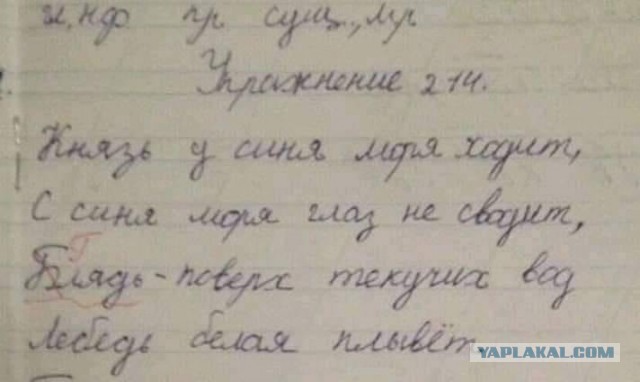 и, нф пр сущ., мр
Упражнение 214.
Князь у синя моря ходит,
С синя моря глаз не сводит,
Г
Блядь - поверх текучих вод
Лебедь белая плывёт
YAPLAKAL.COM